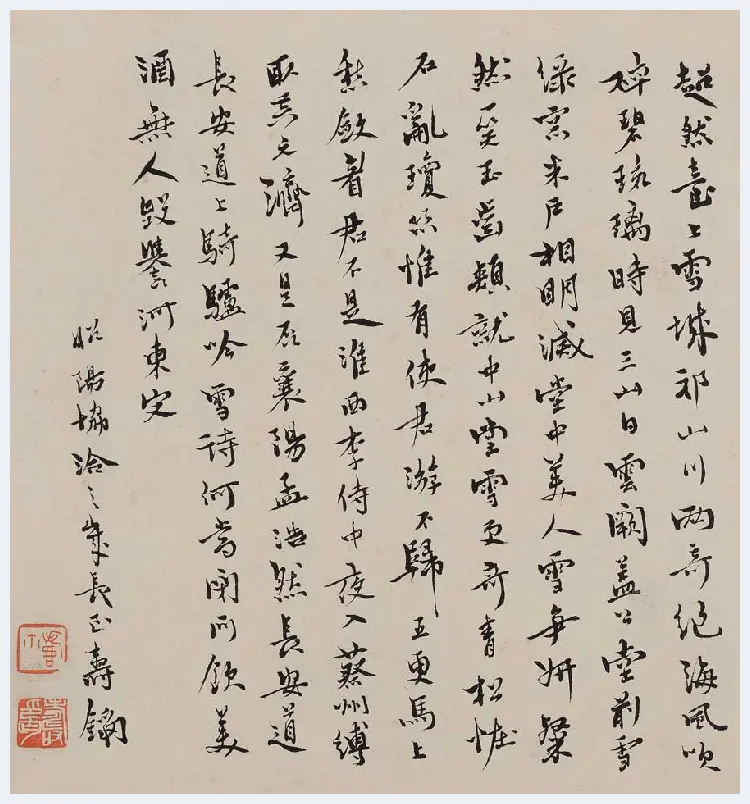 超然臺上雪城郭山川兩奇絕海風吹
碎碧琉璃時見三山白雲闕蓋公堂前雪
綠窗朱戶相明滅堂中美人雪爭妍粲
然一笑玉齒頰就中山堂雪更奇青松怪
石亂瓊絲惟有使君游不歸五更馬上
愁斂眉君不是淮西李侍中夜入蔡州縛
取吳元濟又是不襄陽孟浩然長安道
長安道上騎驢吟雪詩何當閉門飲美
酒無人毀譽河東守
昭陽協洽之歲長至壽鏞